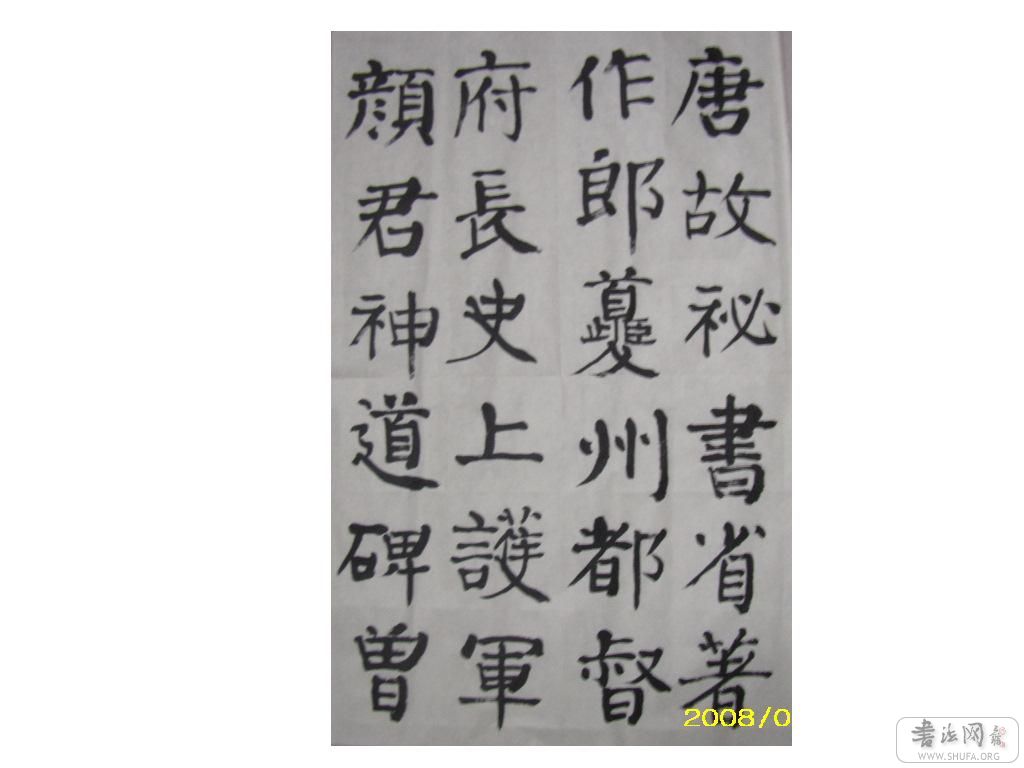 唐故祕書省著
作郎夔州都督
府長史上護軍
顔君神道碑曽
2008/0
書法网
WWW.SHUFA.ORG